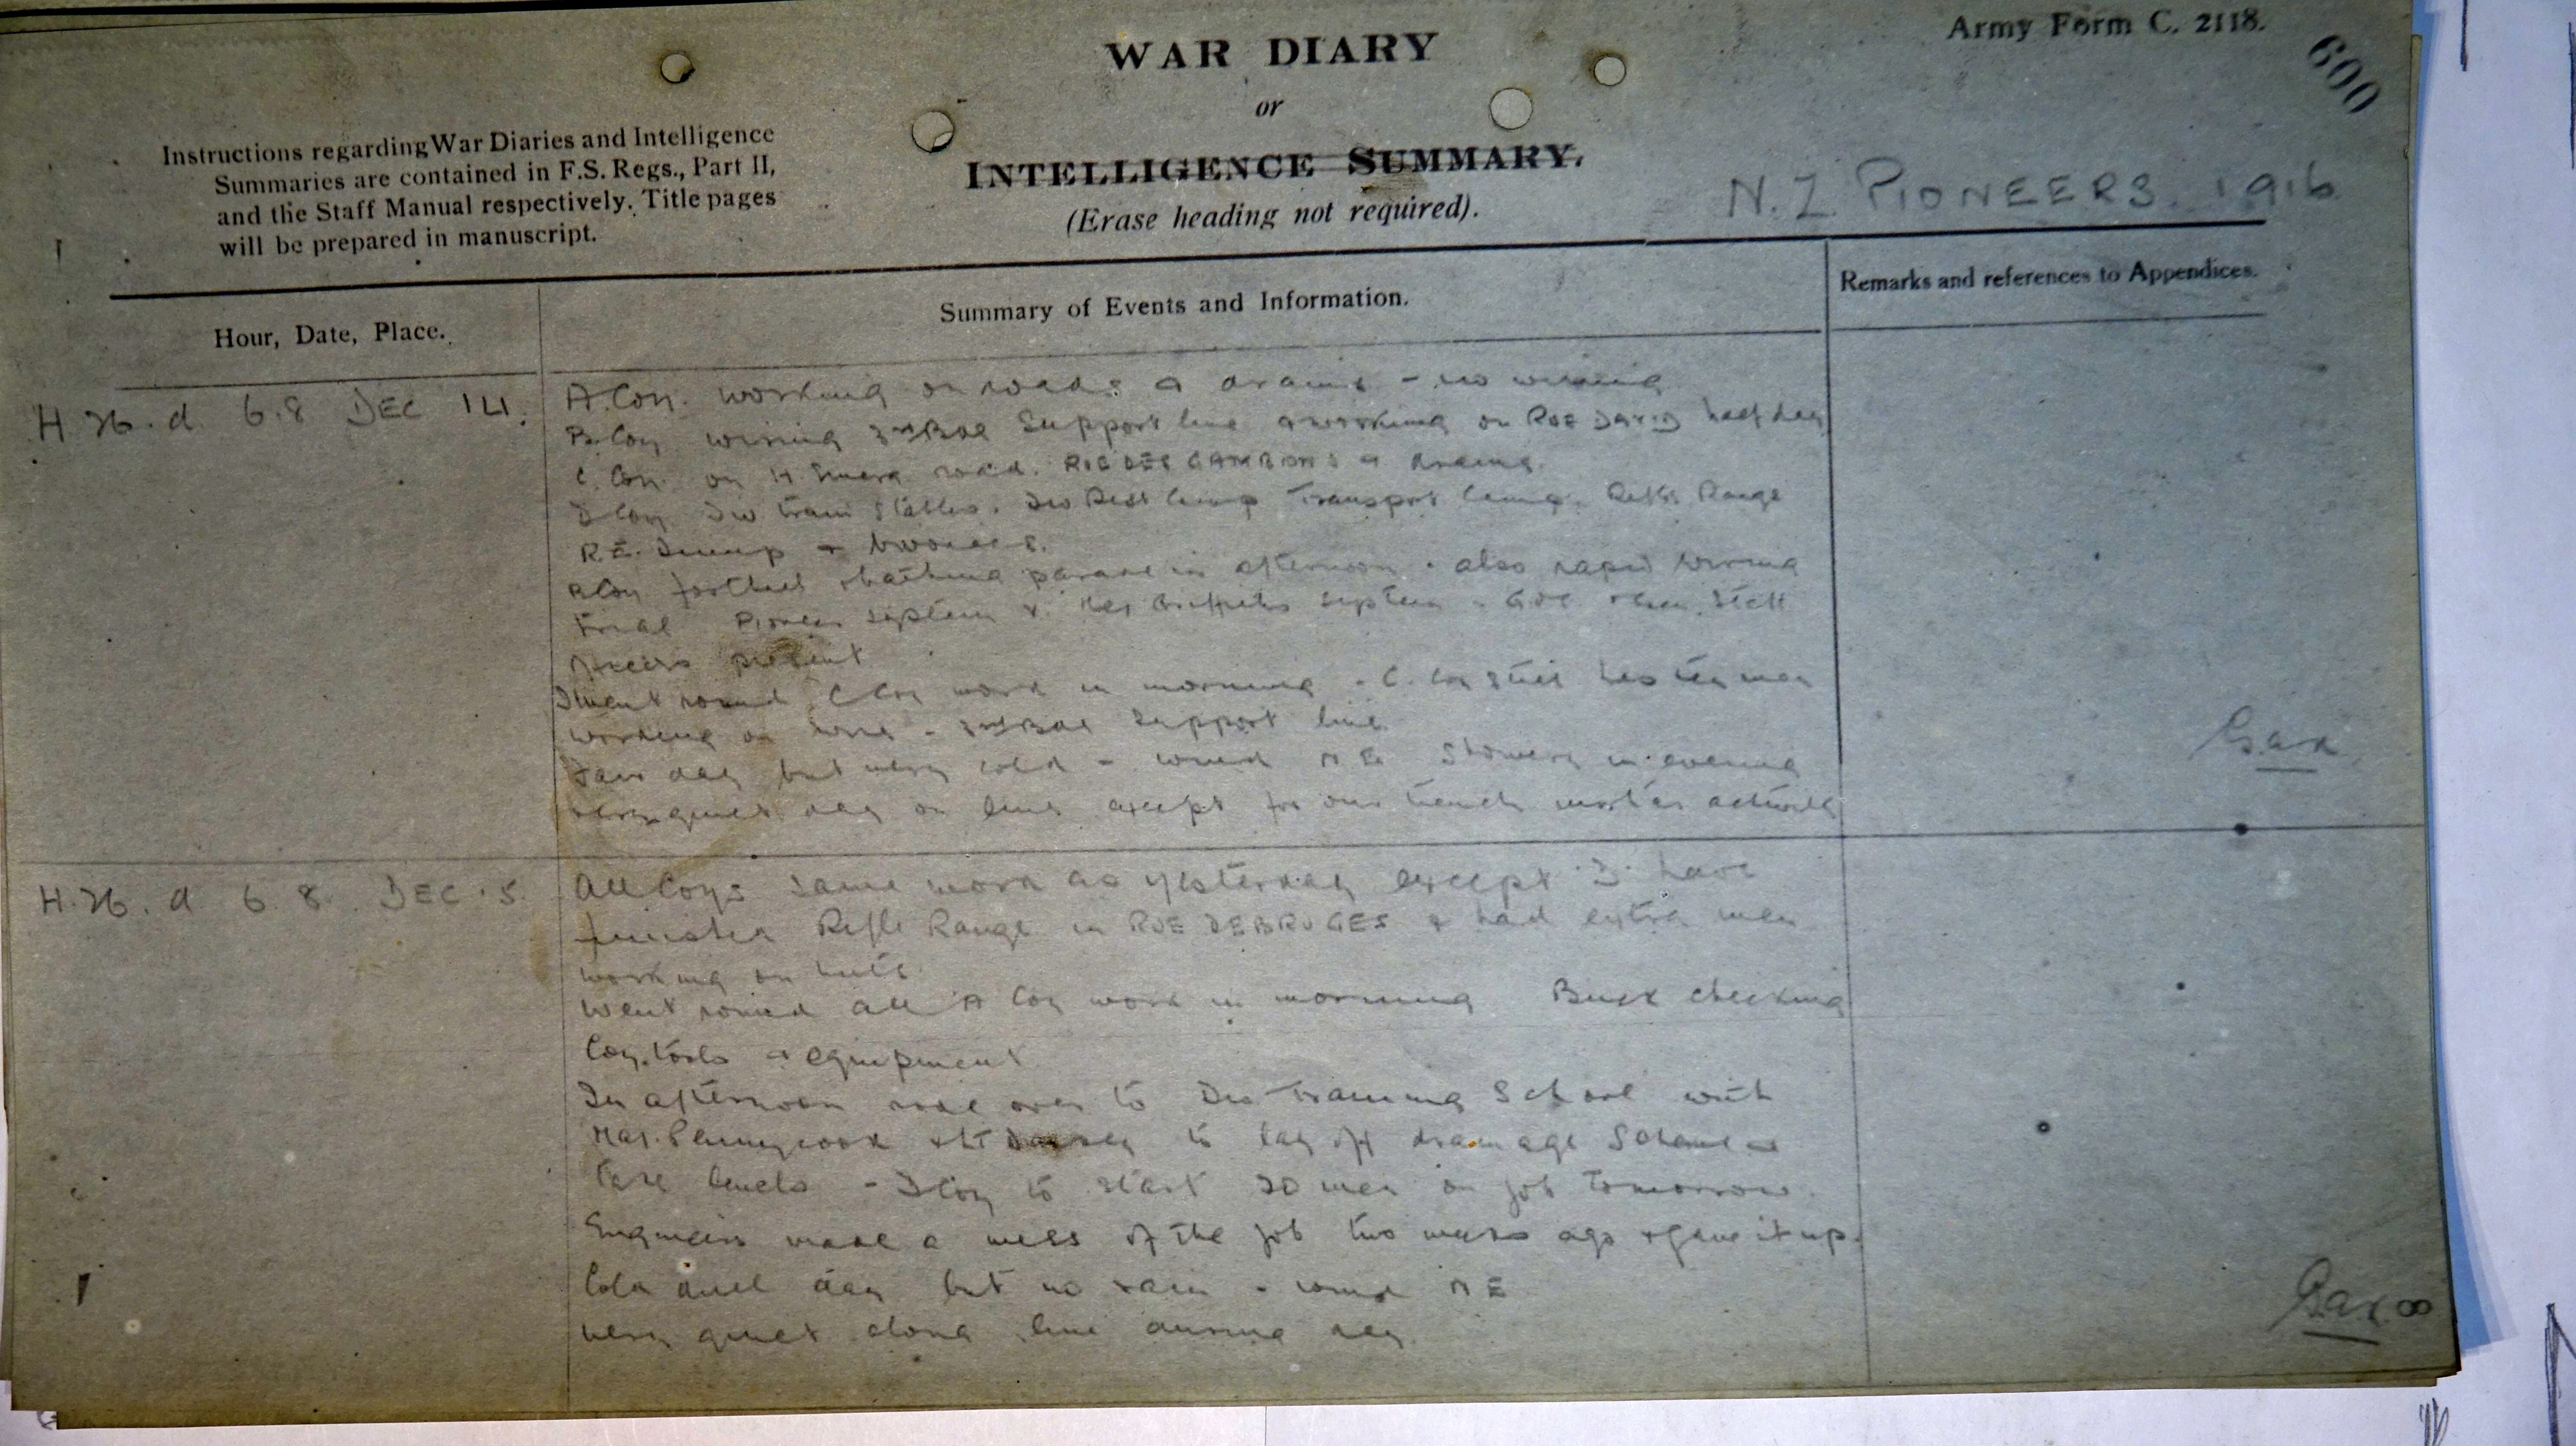 Army Form C. 2118.
600
WAR DIARY
or
INTELLIGENCE SUMMARY.
(Erase heading not required).
Instructions regarding War Diaries and Intelligence
Summaries are contained in F.S. Regs., Part II,
and the Staff Manual respectively. Title pages
will be prepared in manuscript.
N.Z PIONEERS. 1916
Hour, Date, Place.
Summary of Events and Information.
Remarks and references to Appendices.
H. 26. d. 6.8 DEC 14.
A. Coy. working on roads & drains - no wiring
B. Coy wiring 3rd Bde Support line & working on RUE DAVID half day
C. Coy. on road. RUE DES & draining.
D Coy Div train Stables. Div Rest Camp Transport Camp. Rifle Range
R.E. Dump &
B Coy football & bathing parade in afternoon. also rapid wiring
trial Pioneer system v. system - GOC & Staff
Officers present
I went round C Coy work in morning - C. Coy still has ten men
working on wire - 3rd Bde Support line
Fair day but very cold - wind N E Showery in evening
very quiet day on line except for our trench mortar activity
H. 26. d 6. 8. DEC. 15.
All Coys same work as yesterday except D. have
finished Rifle Range in RUE DE BRUGES & had extra men
working on huts
Went round all A Coy work in morning Busy checking
Coy. tools & equipment
In afternoon rode over to Div Training School with
Maj. Pennycook & Lt to lay off drainage Scheme &
take levels - D Coy to start 20 men on job tomorrow.
Engineers made a mess of the job two weeks ago & gave it up.
Cold dull day but no rain - wind N E
very quiet along line during day